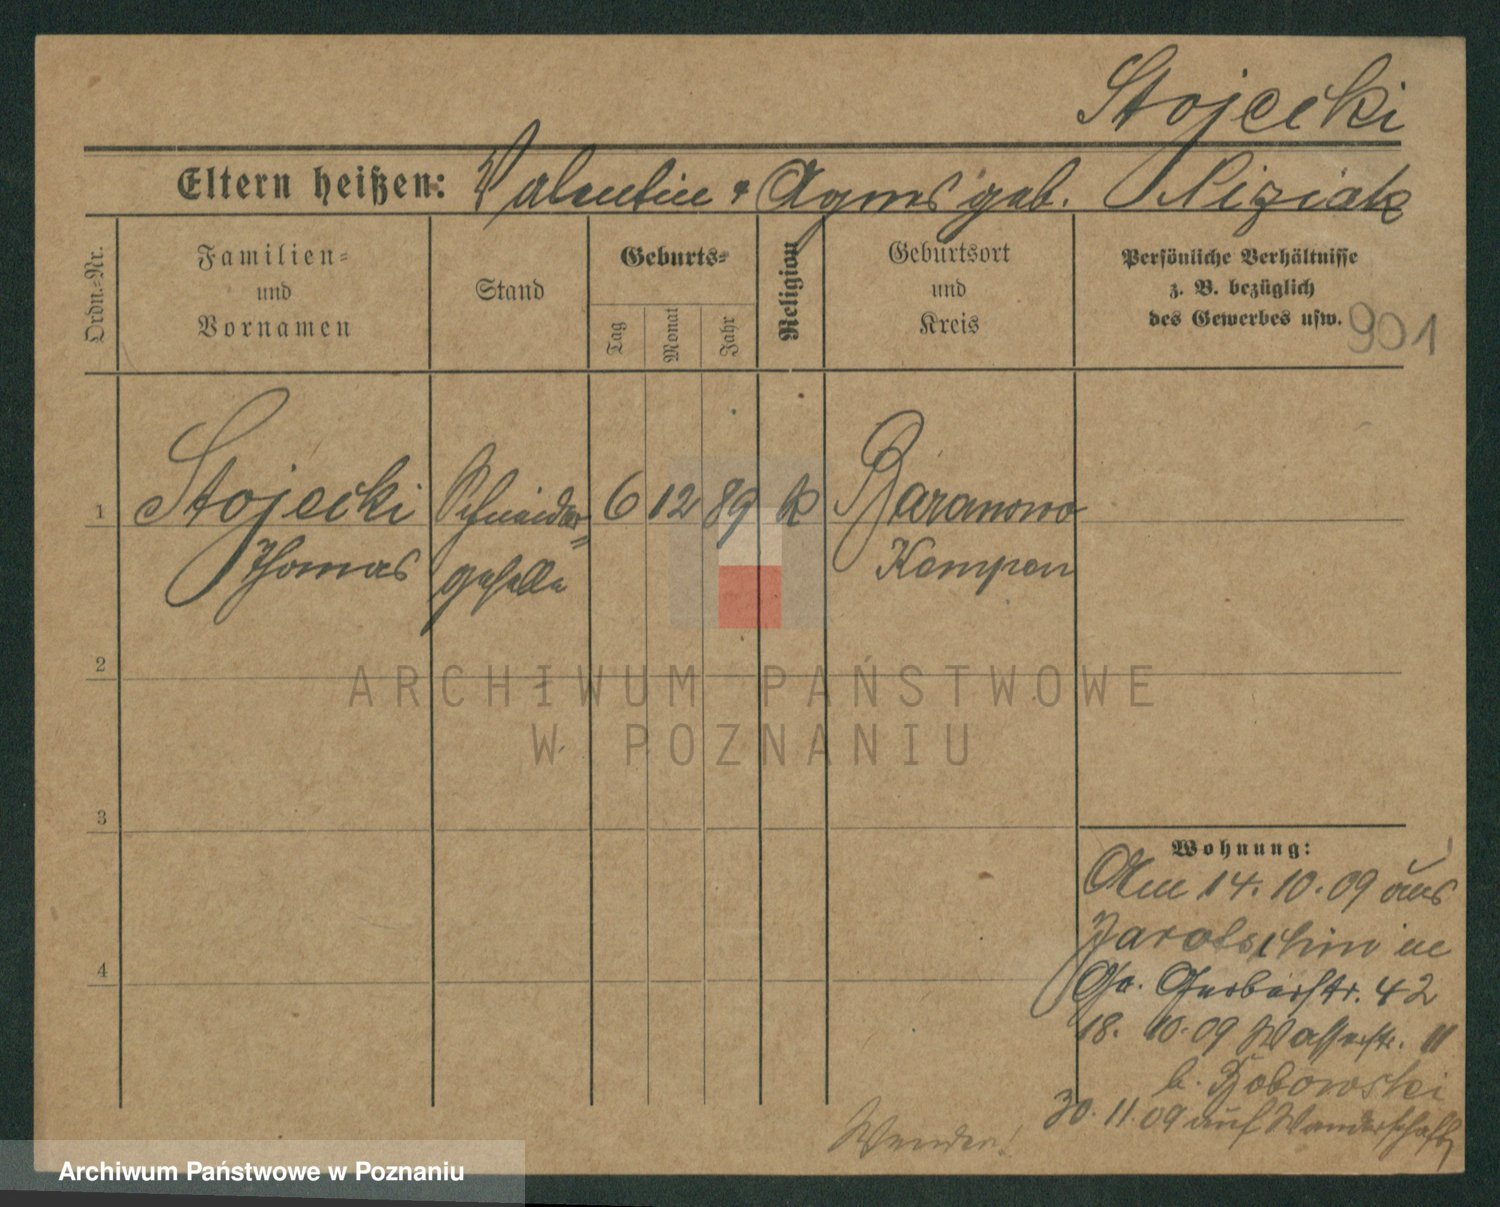 Stojecki
Eltern heißen: Valentin & Agnes geb. Niziak
Ordn.-Nr.
Familien- und Vornamen
Stand
Geburts-
Tag
Monat
Jahr
Religion
Geburtsort und Kreis
Persönliche Verhältnisse
z. B. bezüglich
des Gewerbes usw.
901
1 Stojecki Schneider= 6 12 89 k Baranowo
Thomas geselle Kempen
2
3
4
ARCHIWUM PAŃSTWOWE
W POZNANIU
Wohnung:
Am 14.10.09 aus
Jarotschin in
Gr. Gerberstr. 42
18. 10.09 Wasserstr. 11
b. Bobowski
30.11.09 auf Wanderschaft
Wenden!
Archiwum Państwowe w Poznaniu